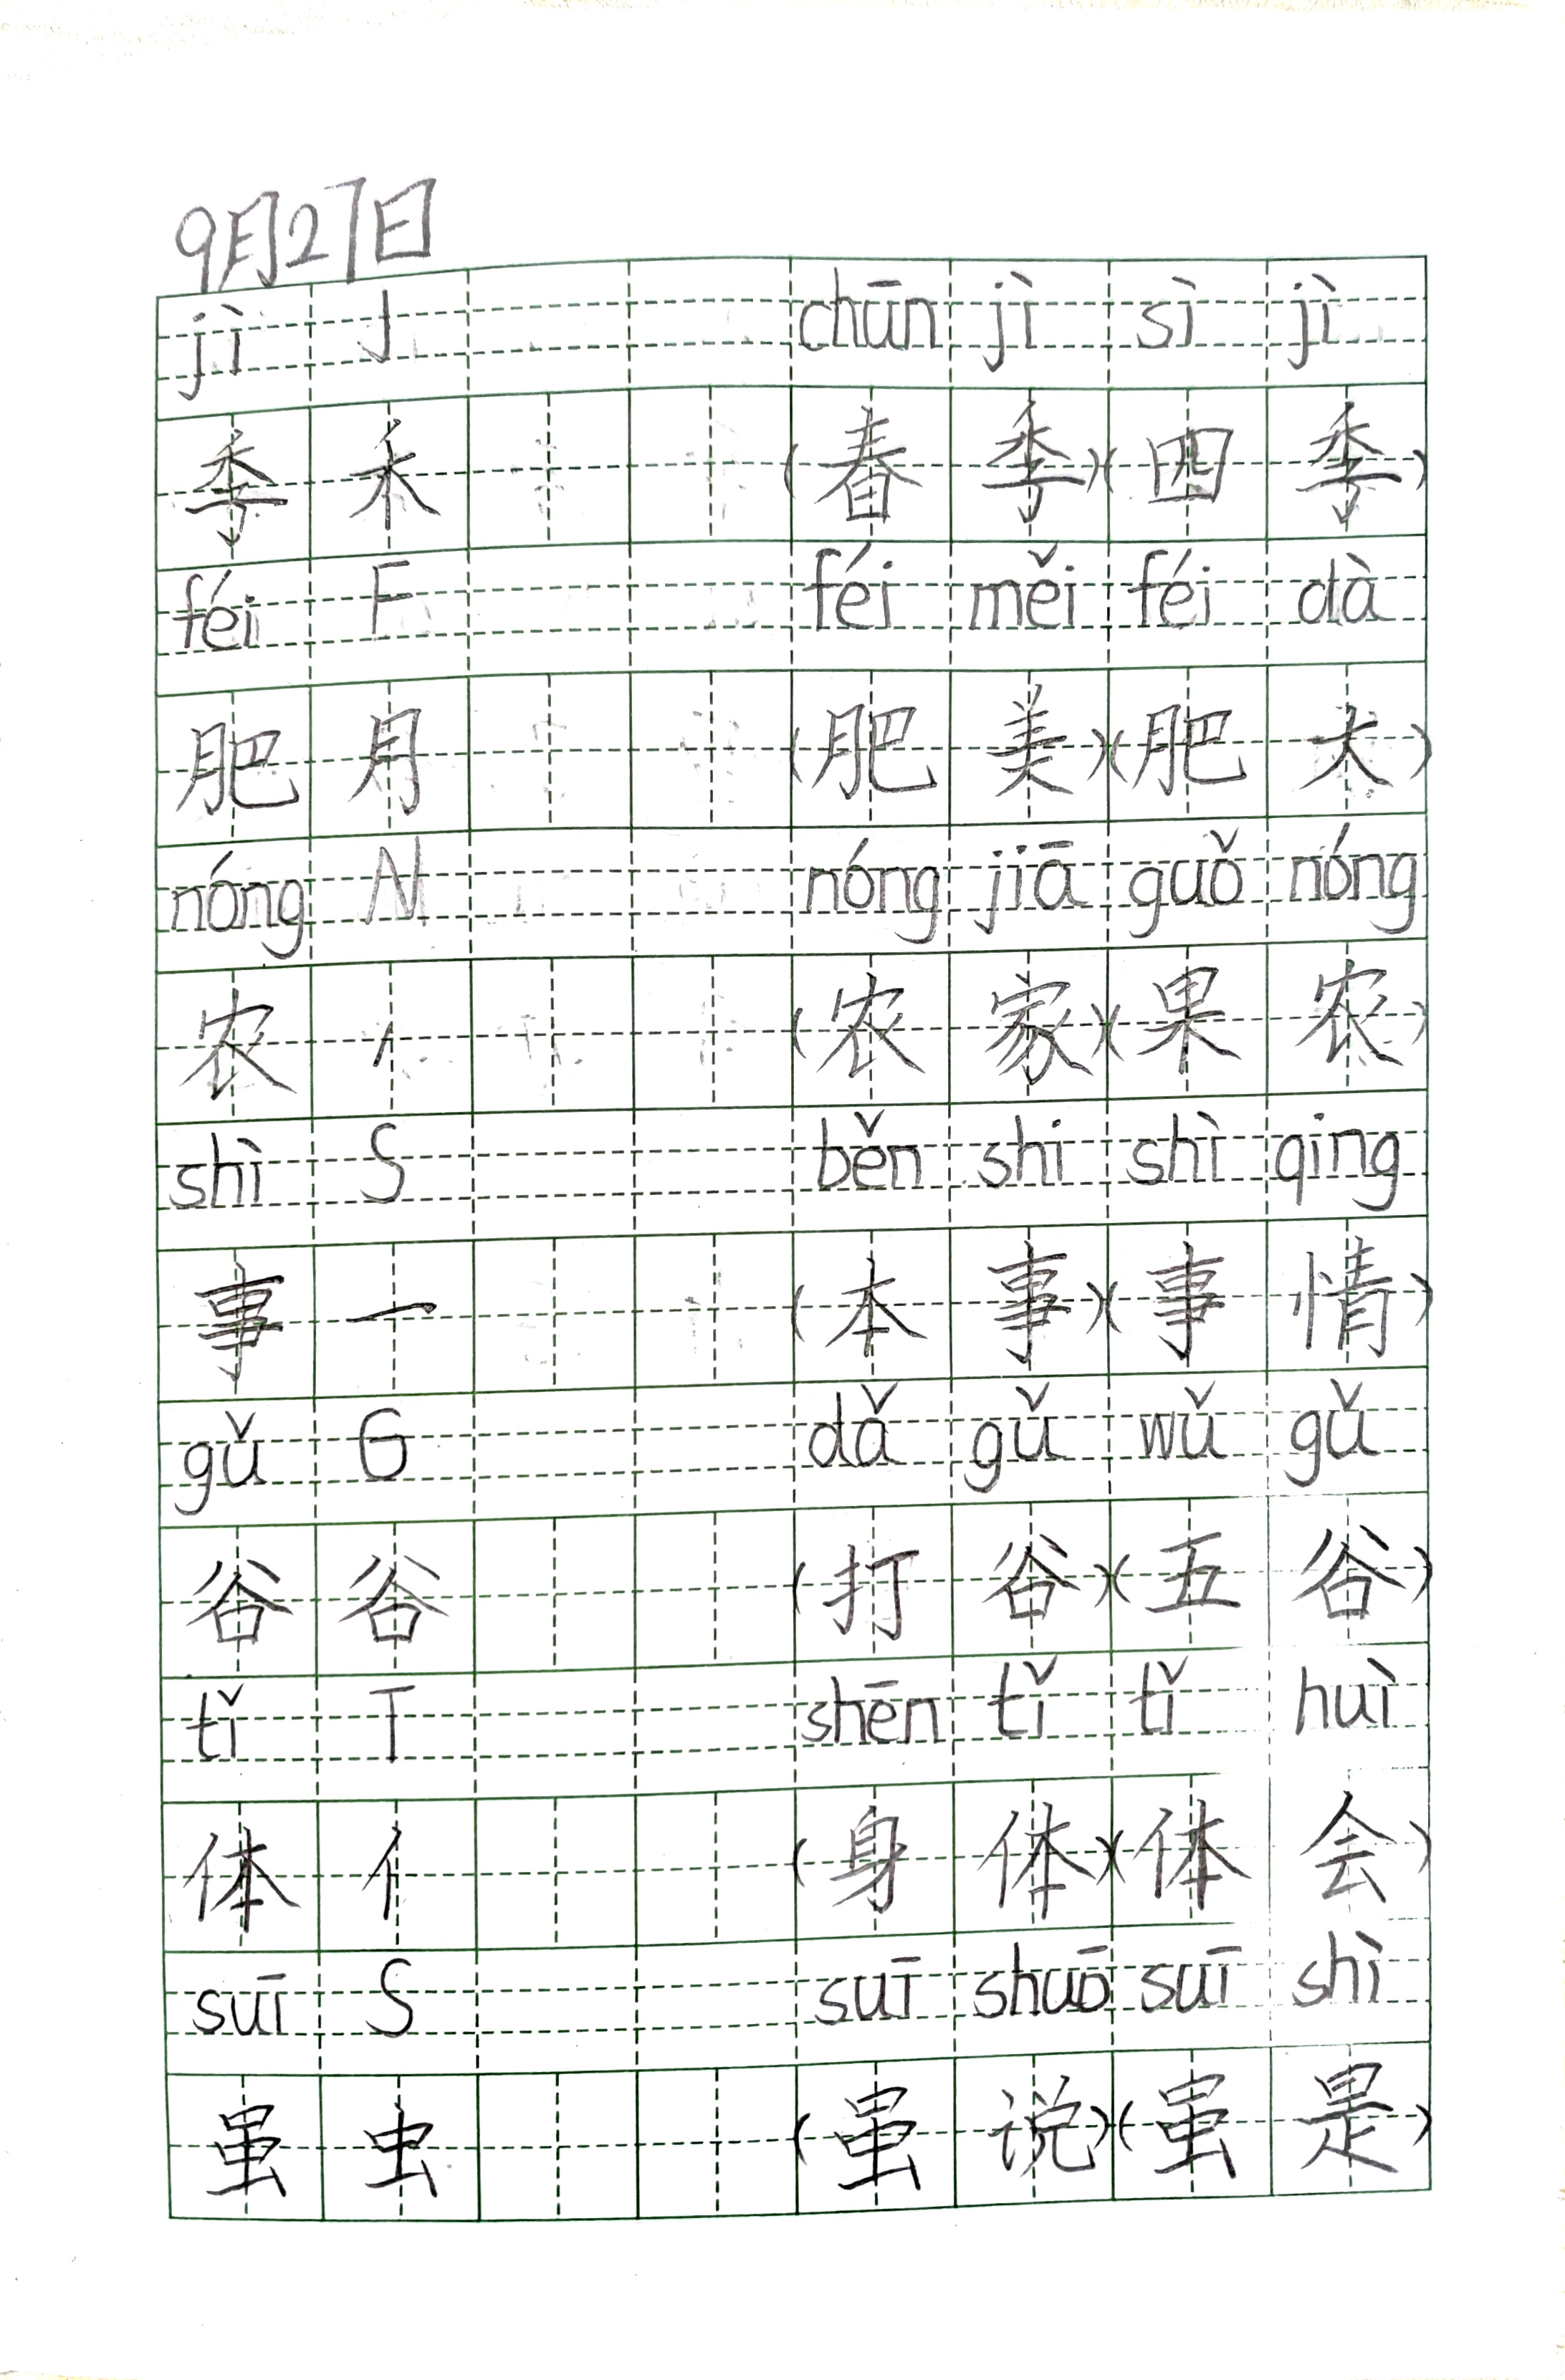 9月27日
jì J chūn jì sì jì
季 禾 (春 季)(四 季)
féi F féi měi féi dà
肥 月 (肥 美)(肥 大)
nóng N nóng jiā guǒ nóng
农 (农 家)(果 农)
shì S běn shi shì qing
事 一 (本 事)(事 情)
gǔ G dǎ gǔ wǔ gǔ
谷 谷 (打 谷)(五 谷)
tǐ T shēn tǐ tǐ huì
体 亻 (身 体)(体 会)
suī S suī shuō suī shì
虽 虫 (虽 说)(虽 是)